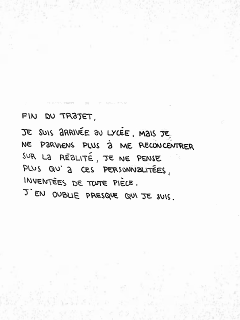 FIN DU TRAJET,
JE SUIS ARRIVÉE AU LYCÉE, MAIS JE
NE PARVIENS PLUS À ME RECONCENTRER
SUR LA RÉALITÉ, JE NE PENSE
PLUS QU'À CES PERSONNALITÉES,
INVENTÉES DE TOUTE PIÈCE.
J'EN OUBLIE PRESQUE QUI JE SUIS.